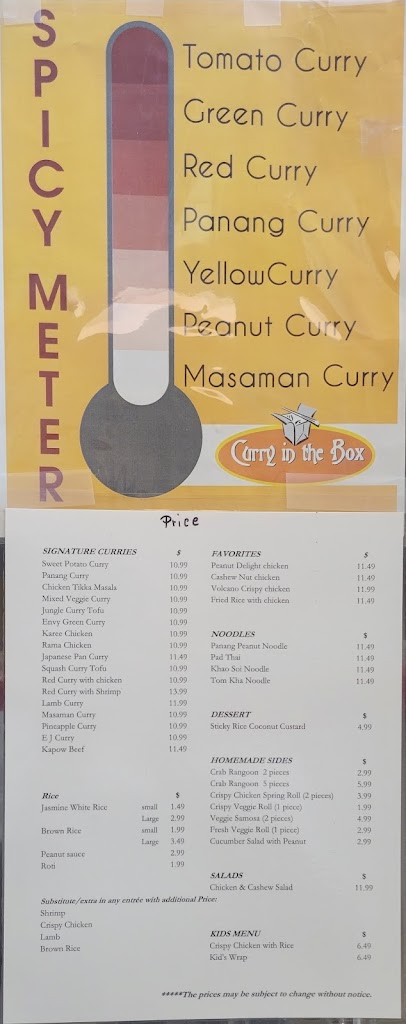 SPICY METER
Tomato Curry
Green Curry
Red Curry
Panang Curry
YellowCurry
Peanut Curry
Masaman Curry
Curry in the Box
Price
SIGNATURE CURRIES $
Sweet Potato Curry 10.99
Panang Curry 10.99
Chicken Tikka Masala 10.99
Mixed Veggie Curry 10.99
Jungle Curry Tofu 10.99
Envy Green Curry 10.99
Karee Chicken 10.99
Rama Chicken 10.99
Japanese Pan Curry 11.49
Squash Curry Tofu 10.99
Red Curry with chicken 10.99
Red Curry with Shrimp 13.99
Lamb Curry 11.99
Masaman Curry 10.99
Pineapple Curry 10.99
E J Curry 10.99
Kapow Beef 11.49
Rice $
Jasmine White Rice small 1.49
Large 2.99
Brown Rice small 1.99
Large 3.49
Peanut sauce 2.99
Roti 1.99
Substitute/extra in any entrée with additional Price:
Shrimp
Crispy Chicken
Lamb
Brown Rice
FAVORITES $
Peanut Delight chicken 11.49
Cashew Nut chicken 11.49
Volcano Crispy chicken 11.99
Fried Rice with chicken 11.49
NOODLES $
Panang Peanut Noodle 11.49
Pad Thai 11.49
Khao Soi Noodle 11.49
Tom Kha Noodle 11.49
DESSERT $
Sticky Rice Coconut Custard 4.99
HOMEMADE SIDES $
Crab Rangoon 2 pieces 2.99
Crab Rangoon 5 pieces 5.99
Crispy Chicken Spring Roll (2 pieces) 3.99
Crispy Veggie Roll (1 piece) 1.99
Veggie Samosa (2 pieces) 4.99
Fresh Veggie Roll (1 piece) 2.99
Cucumber Salad with Peanut 2.99
SALADS $
Chicken & Cashew Salad 11.99
KIDS MENU $
Crispy Chicken with Rice 6.49
Kid's Wrap 6.49
*****The prices may be subject to change without notice.